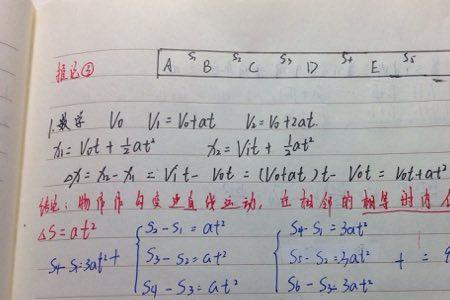 推论②
A S₁ B S₂ C S₃ D S₄ E S₅
1. 数学 V₀ V₁=V₀+at V₂=V₀+2at.
x₁=V₀t+½at² x₂=V₁t+½at²
Δx=x₂-x₁=V₁t-V₀t=(V₀+at)t-V₀t=V₀t+at²
结论: 物体作匀变速直线运动, 在相邻的相等时内
ΔS=at²
S₂-S₁=at² S₄-S₁=3at²
S₄-S₁=3at² + S₃-S₂=at² S₅-S₂=3at² + =9
S₄-S₃=at² S₆-S₃=3at²